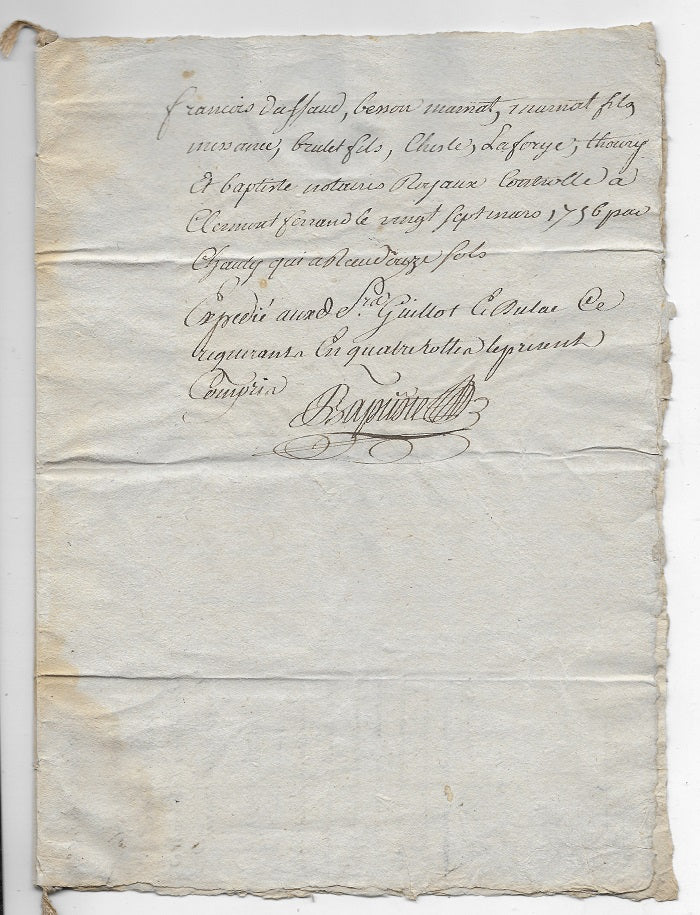 francois dassaud, besson marnat, marnat fils,
missance, brulet fils, Cheste, Laforge, thoury
Et baptiste notaires Royaux Controllé a
Clermont ferrand le vingt sept mars 1756 par
Chauty qui a Recu douze sols
Expedié auxd. Srs Guillot Et Bulac Ce
requerants En quatre rolles le present
Compris
Baptiste